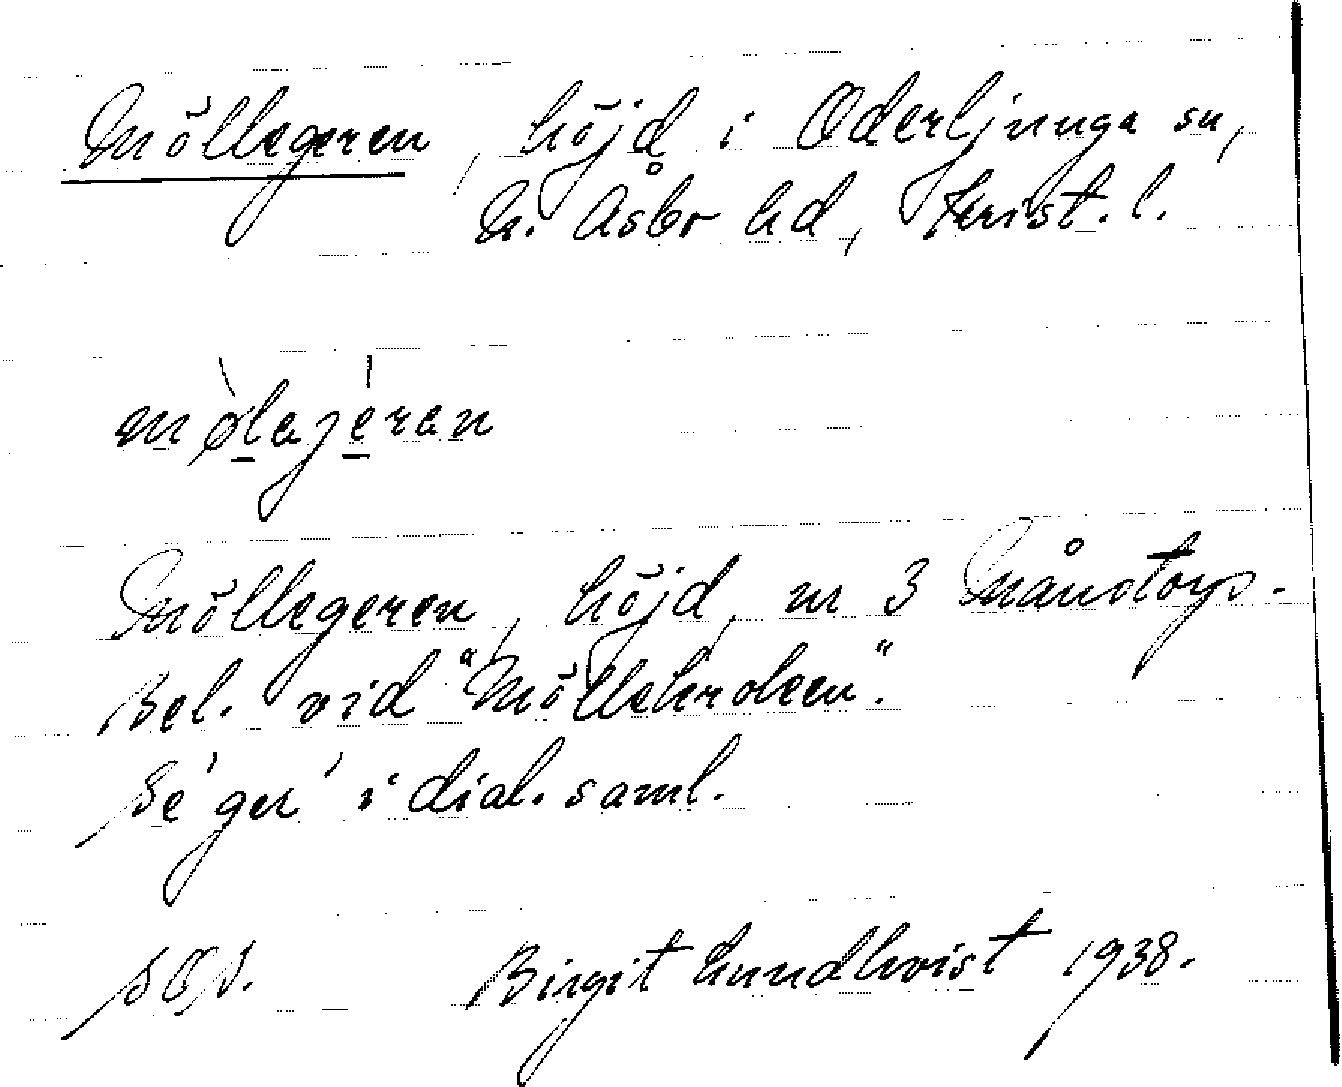 Möllegeren, höjd i Oderljunga sn,
N. Åsbo hd, Krist. l.
mølajeran
Möllegeren, höjd, nr 3 Månstorp.
Bel. vid "Möllekroken".
Se 'ger' i dial. saml.
Birgit Lundkvist 1938.